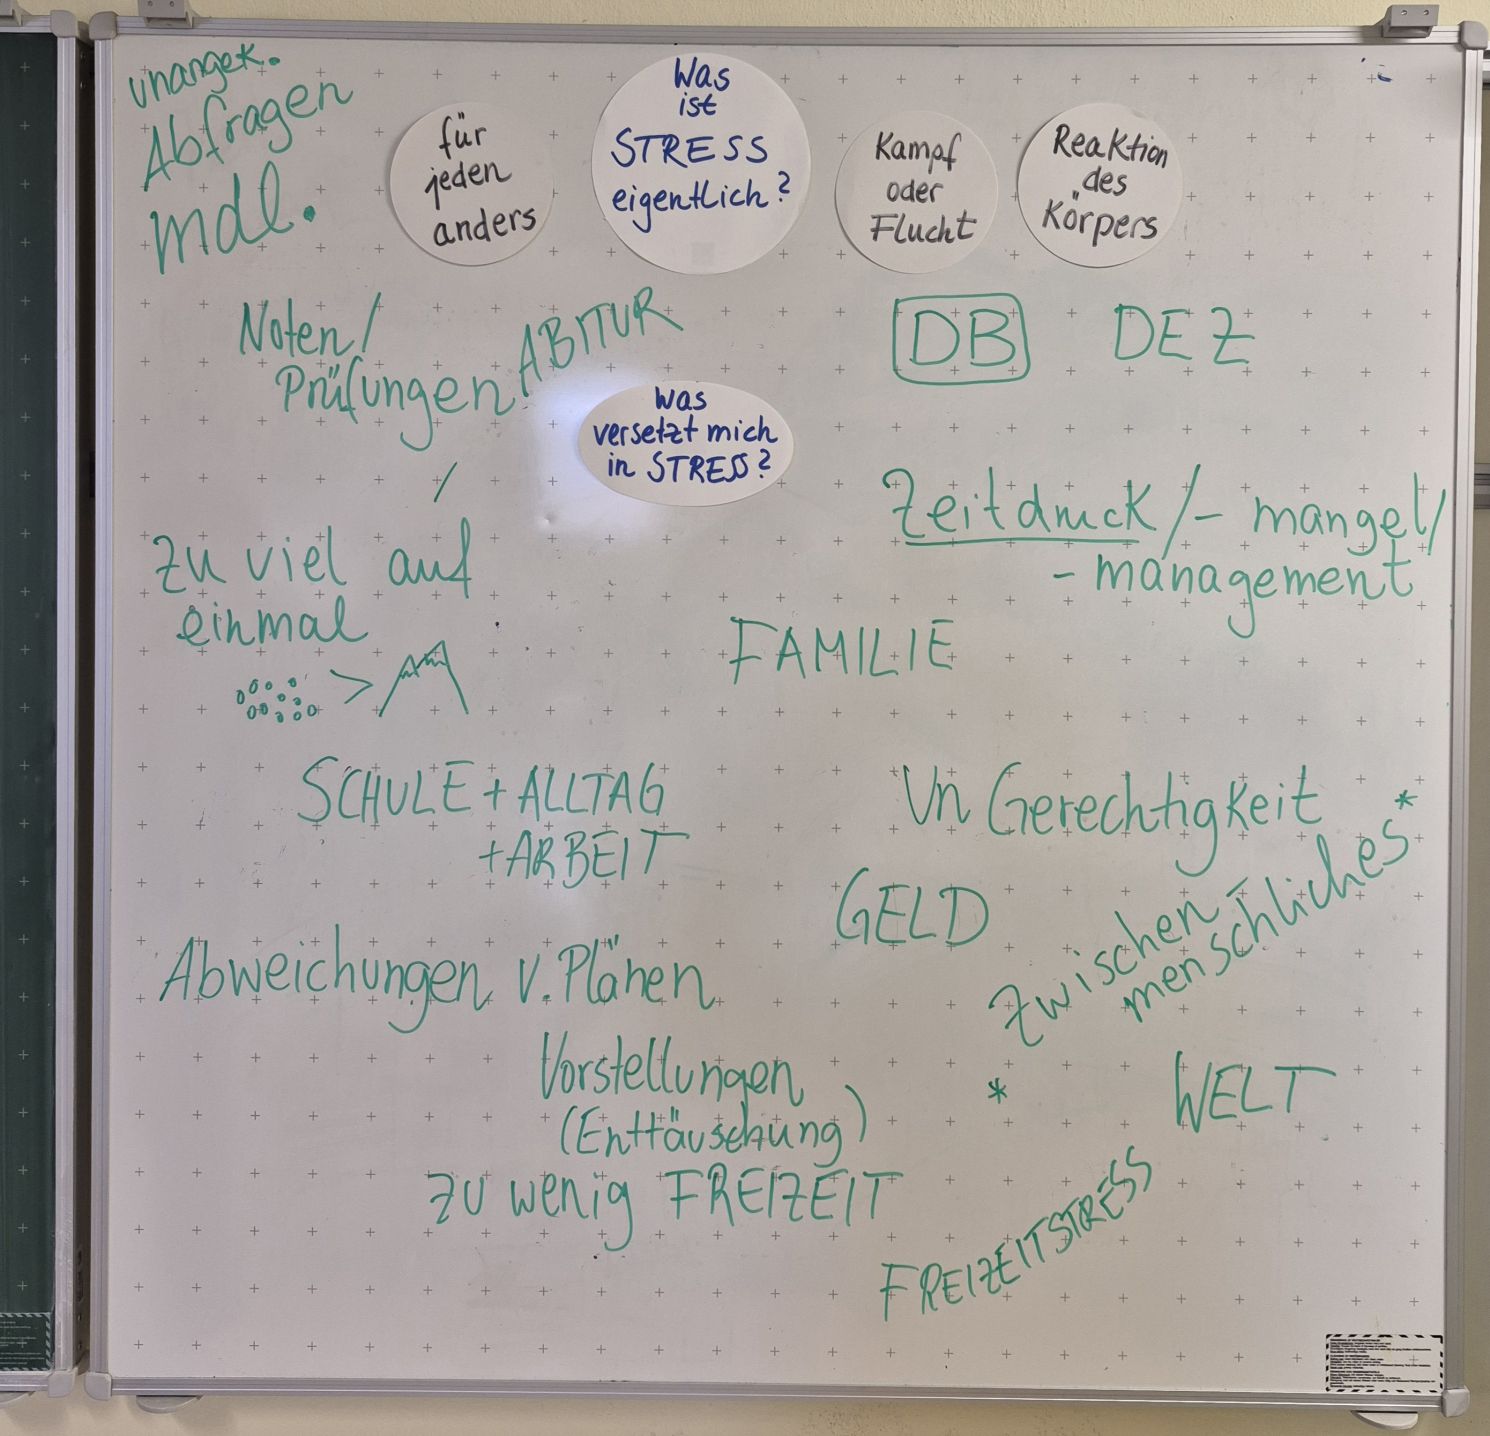 unangek.
Abfragen
mdl.
für
jeden
anders
Was
ist
STRESS
eigentlich?
Kampf
oder
Flucht
Reaktion
des
Körpers
Noten/
Prüfungen
ABITUR
DB
DEZ
Was
versetzt mich
in STRESS?
Zeitdruck/-mangel/
-management
zu viel auf
einmal
>
FAMILIE
SCHULE + ALLTAG
+ ARBEIT
Un Gerechtigkeit
GELD
Zwischen-
menschliches *
Abweichungen v. Plänen
Vorstellungen
(Enttäuschung)
*
WELT
zu wenig FREIZEIT
FREIZEITSTRESS